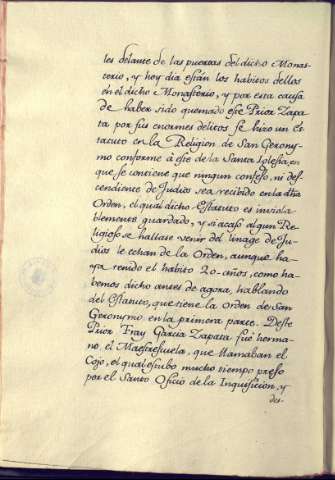 les delante de las puertas del dicho Monas-
terio, y hoy dia están los habitos dellos
en el dicho Monasterio, y por esta causa
de haber sido quemado este Prior Zapa
ta por sus enormes delitos se hizo un es
tatuto en la Religion de San Gerony-
mo conforme á este de la Santa Iglesia, en
que se contiene que ningun confeso, ni des-
cendiente de Judios sea recibido en la dha
Orden, el qual dicho Estatuto es inviola
blemente guardado, y si acaso algun Re-
ligioso se hallase venir del linage de Ju-
dios le echan de la Orden, aunque ha-
ya tenido el habito 20 años, como ha-
bemos dicho antes de agora, hablando
del Estatuto, que tiene la Orden de San
Geronymo en la primera parte. Deste
Prior Fray Garcia Zapata fué herma-
no el Maestrescuela, que llamaban el
Cojo, el qual estubo mucho tiempo preso
por el Santo Oficio de la Inquisicion, y